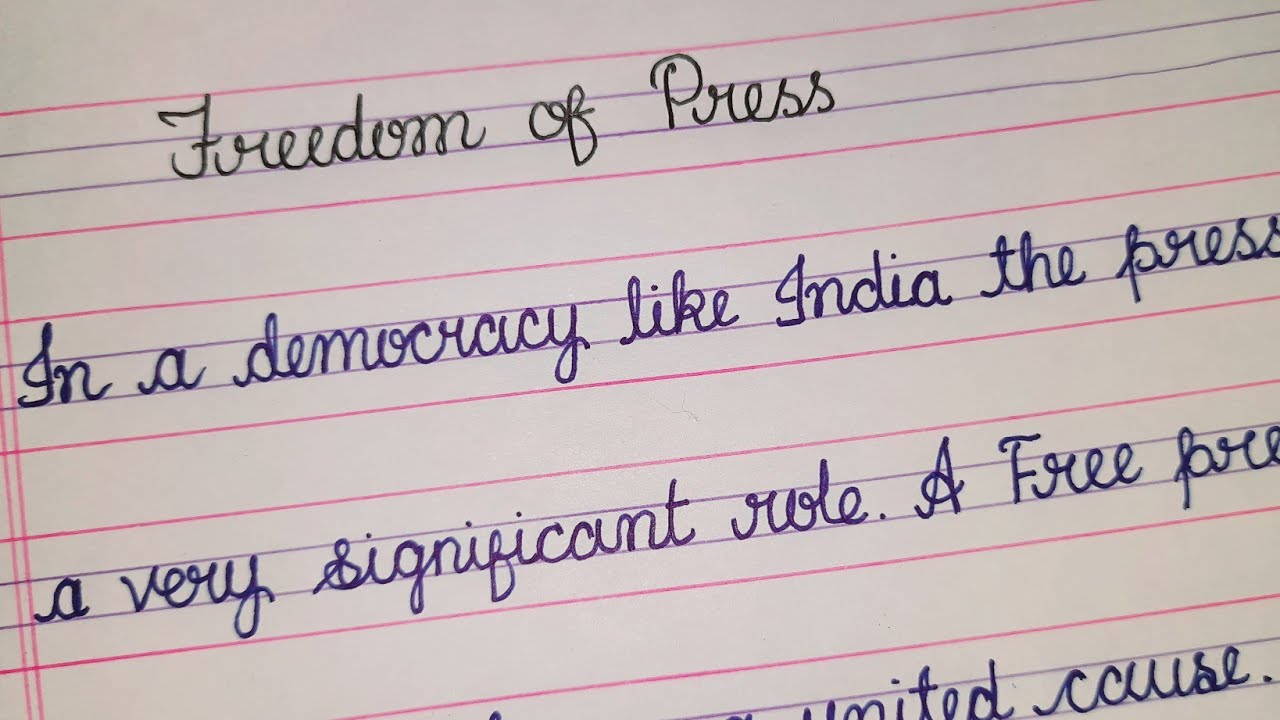 Freedom of Press
In a democracy like India the press
a very significant role. A Free pre
united cause.